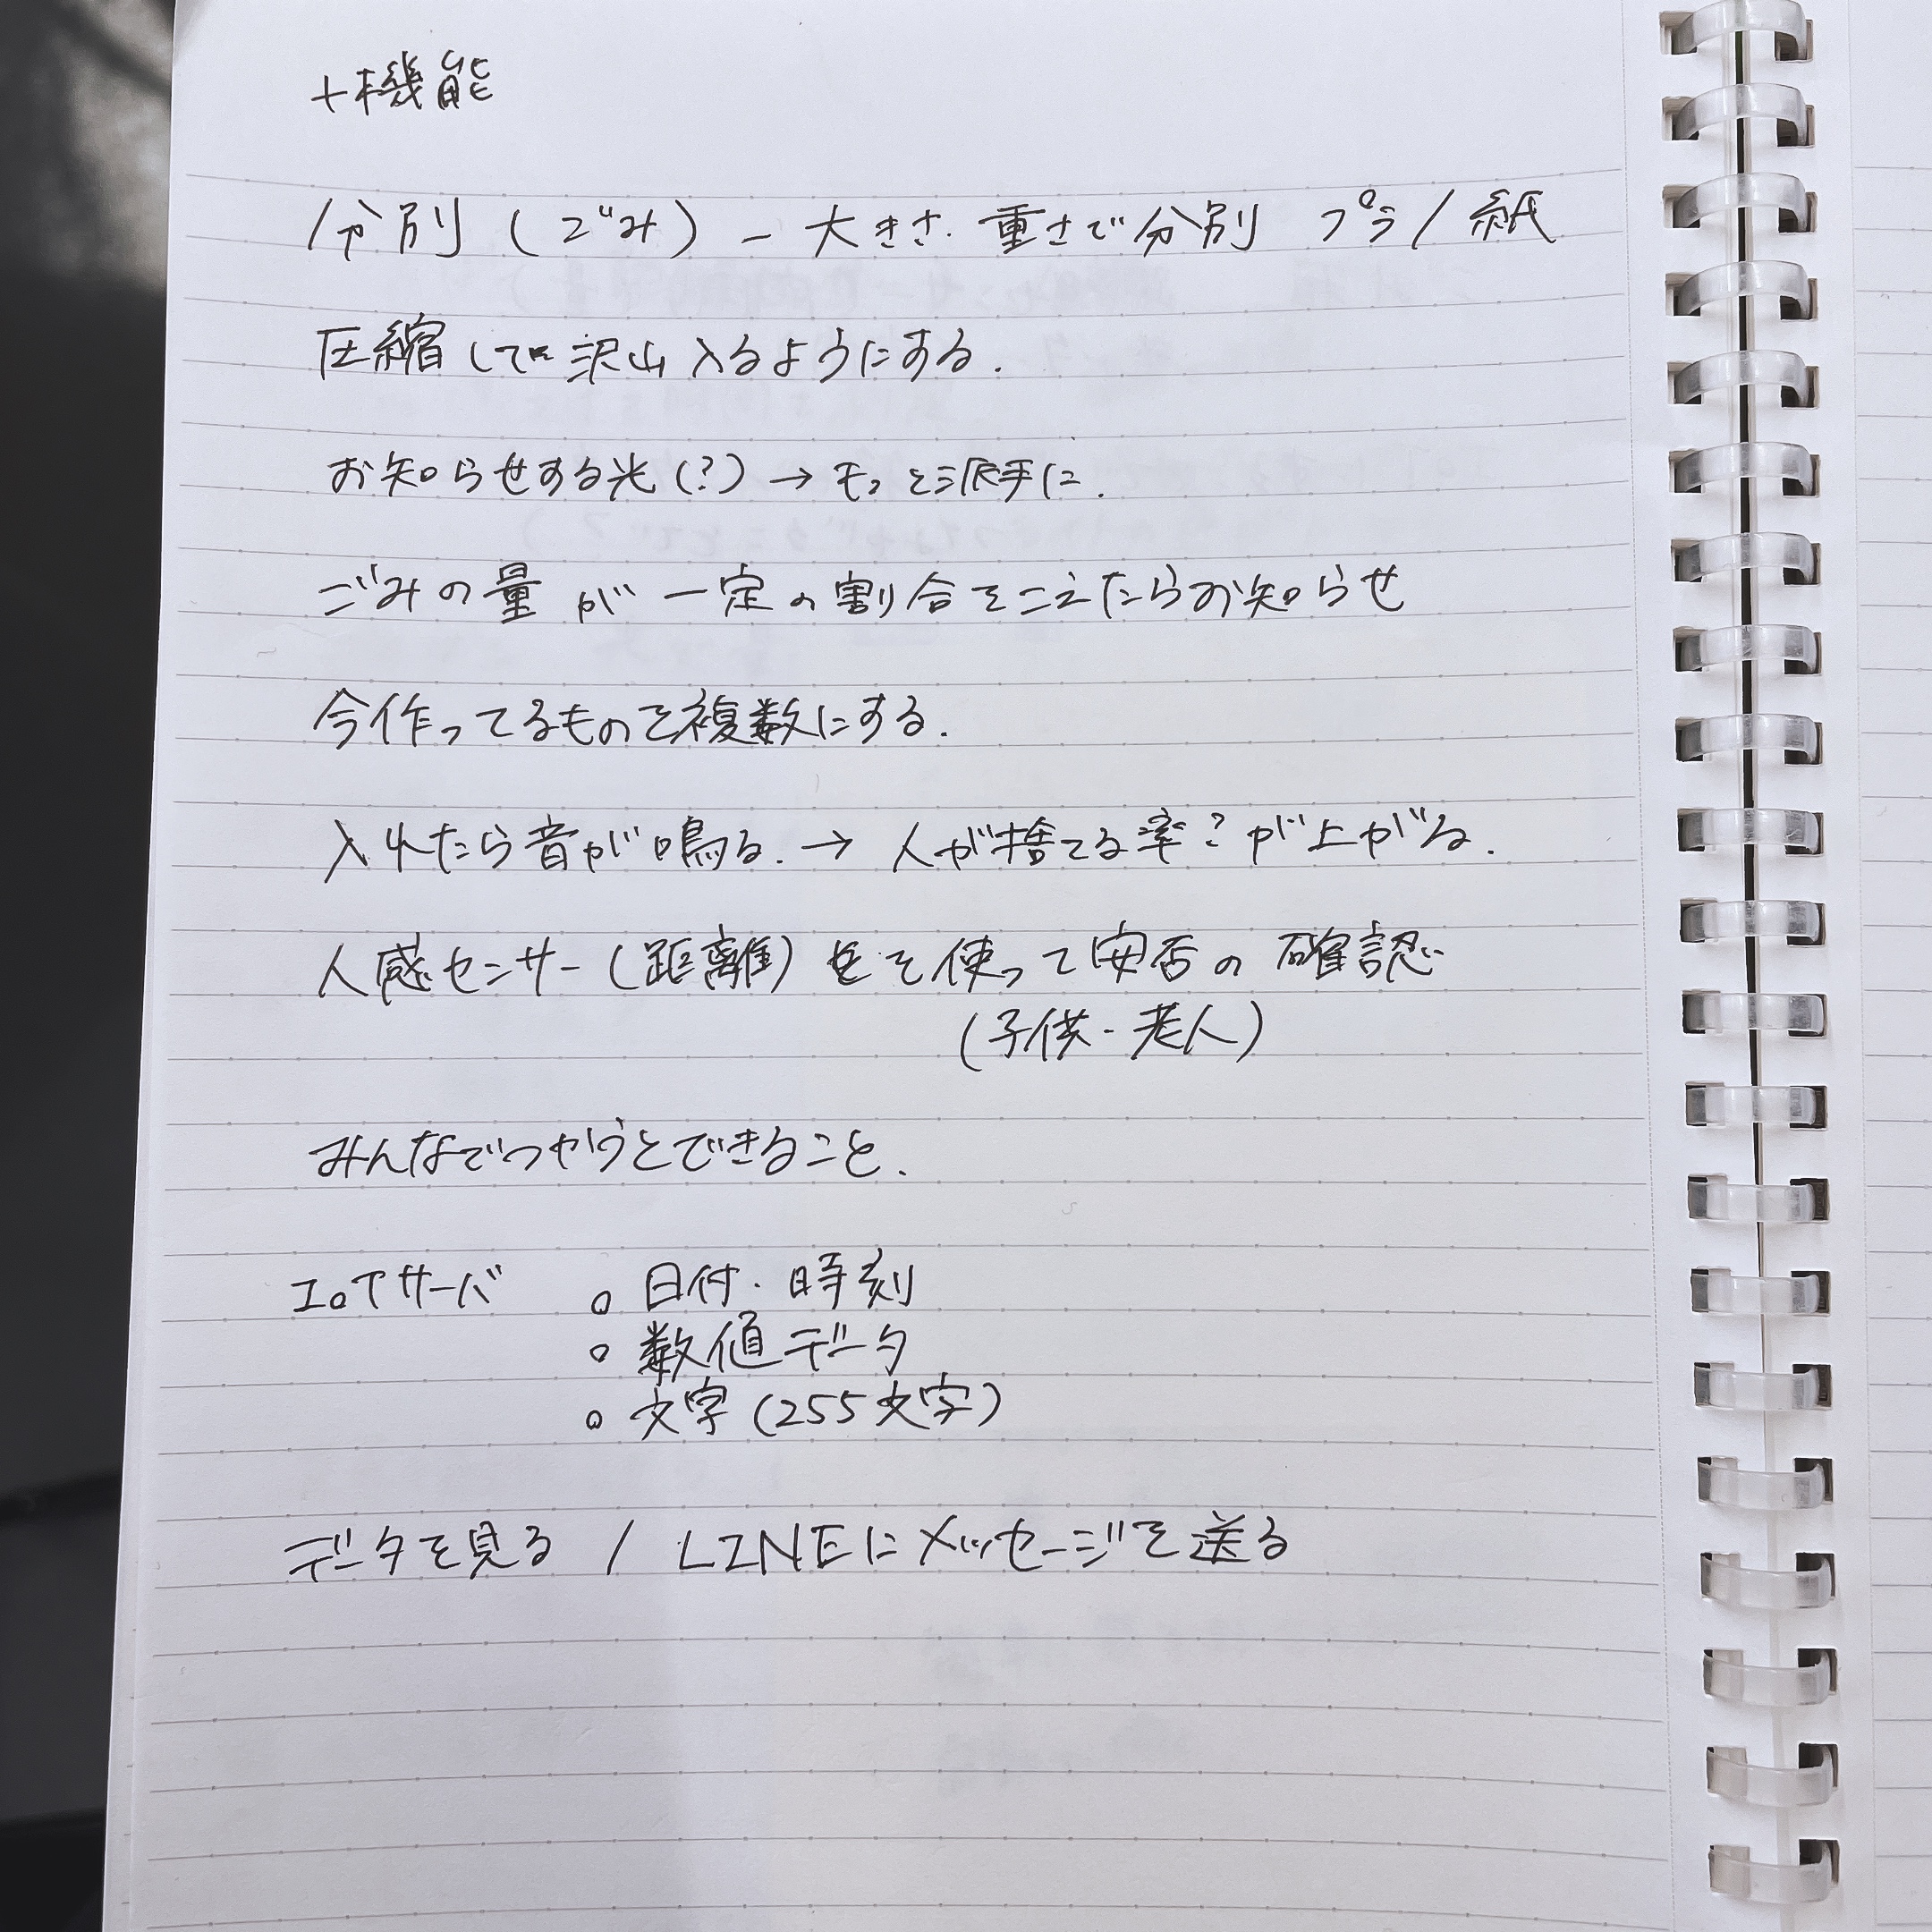 +機能
分別(ごみ) - 大きさ・重さで分別 プラ/紙
圧縮して沢山入るようにする.
お知らせする光(?) → もっと派手に.
ごみの量が一定の割合をこえたらお知らせ
今作ってるものを複数にする.
入れたら音が鳴る. → 人が捨てる率?が上がる.
人感センサー(距離)を使って安否の確認
(子供・老人)
みんなでつかうとできること.
IoTサーバ ○ 日付・時刻
○ 数値データ
○ 文字(255文字)
データを見る / LINEにメッセージを送る